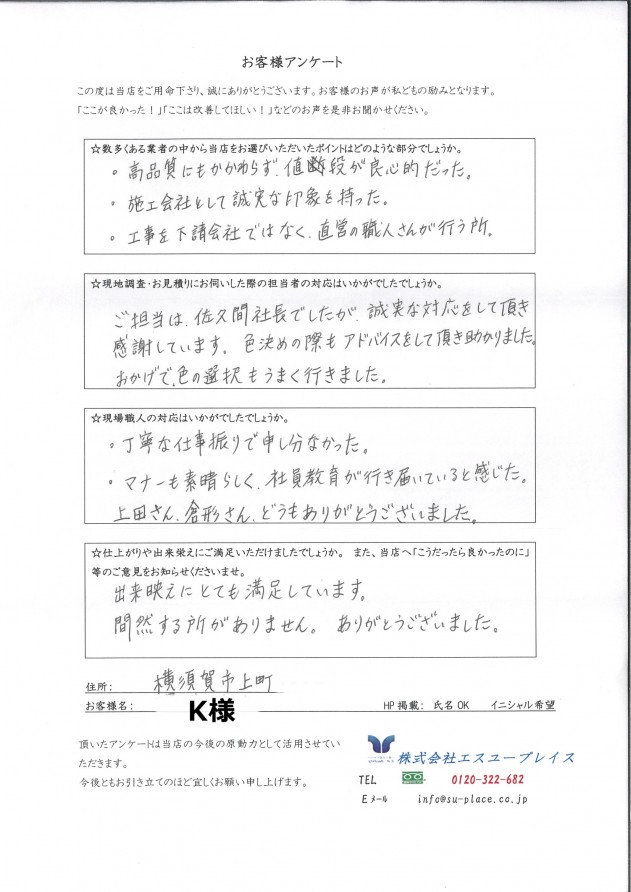 お客様アンケート
この度は当店をご用命下さり、誠にありがとうございます。お客様のお声が私どもの励みとなります。
「ここが良かった！」「ここは改善してほしい！」などのお声を是非お聞かせください。
☆数多くある業者の中から当店をお選びいただいたポイントはどのような部分でしょうか。
・高品質にもかかわらず、値段が良心的だった。
・施工会社として誠実な印象を持った。
・工事を下請会社ではなく、直営の職人さんが行う所。
☆現地調査・お見積りにお伺いした際の担当者の対応はいかがでしたでしょうか。
ご担当は、佐久間社長でしたが、誠実な対応をして頂き
感謝しています。色決めの際もアドバイスをして頂き助かりました。
おかげで、色の選択もうまく行きました。
☆現場職人の対応はいかがでしたでしょうか。
・丁寧な仕事振りで申し分なかった。
・マナーも素晴らしく、社員教育が行き届いていると感じた。
上田さん、倉形さん、どうもありがとうございました。
☆仕上がりや出来栄えにご満足いただけましたでしょうか。 また、当店へ「こうだったら良かったのに」
等のご意見をお知らせくださいませ。
出来映えにとても満足しています。
間然する所がありません。 ありがとうございました。
住所: 横須賀市上町
お客様名: K様 HP掲載: 氏名OK イニシャル希望
頂いたアンケートは当店の今後の原動力として活用させてい
ただきます。
今後ともお引き立てのほど宜しくお願い申し上げます。
株式会社エスユープレイス
TEL 0120-322-682
Eメール info@su-place.co.jp